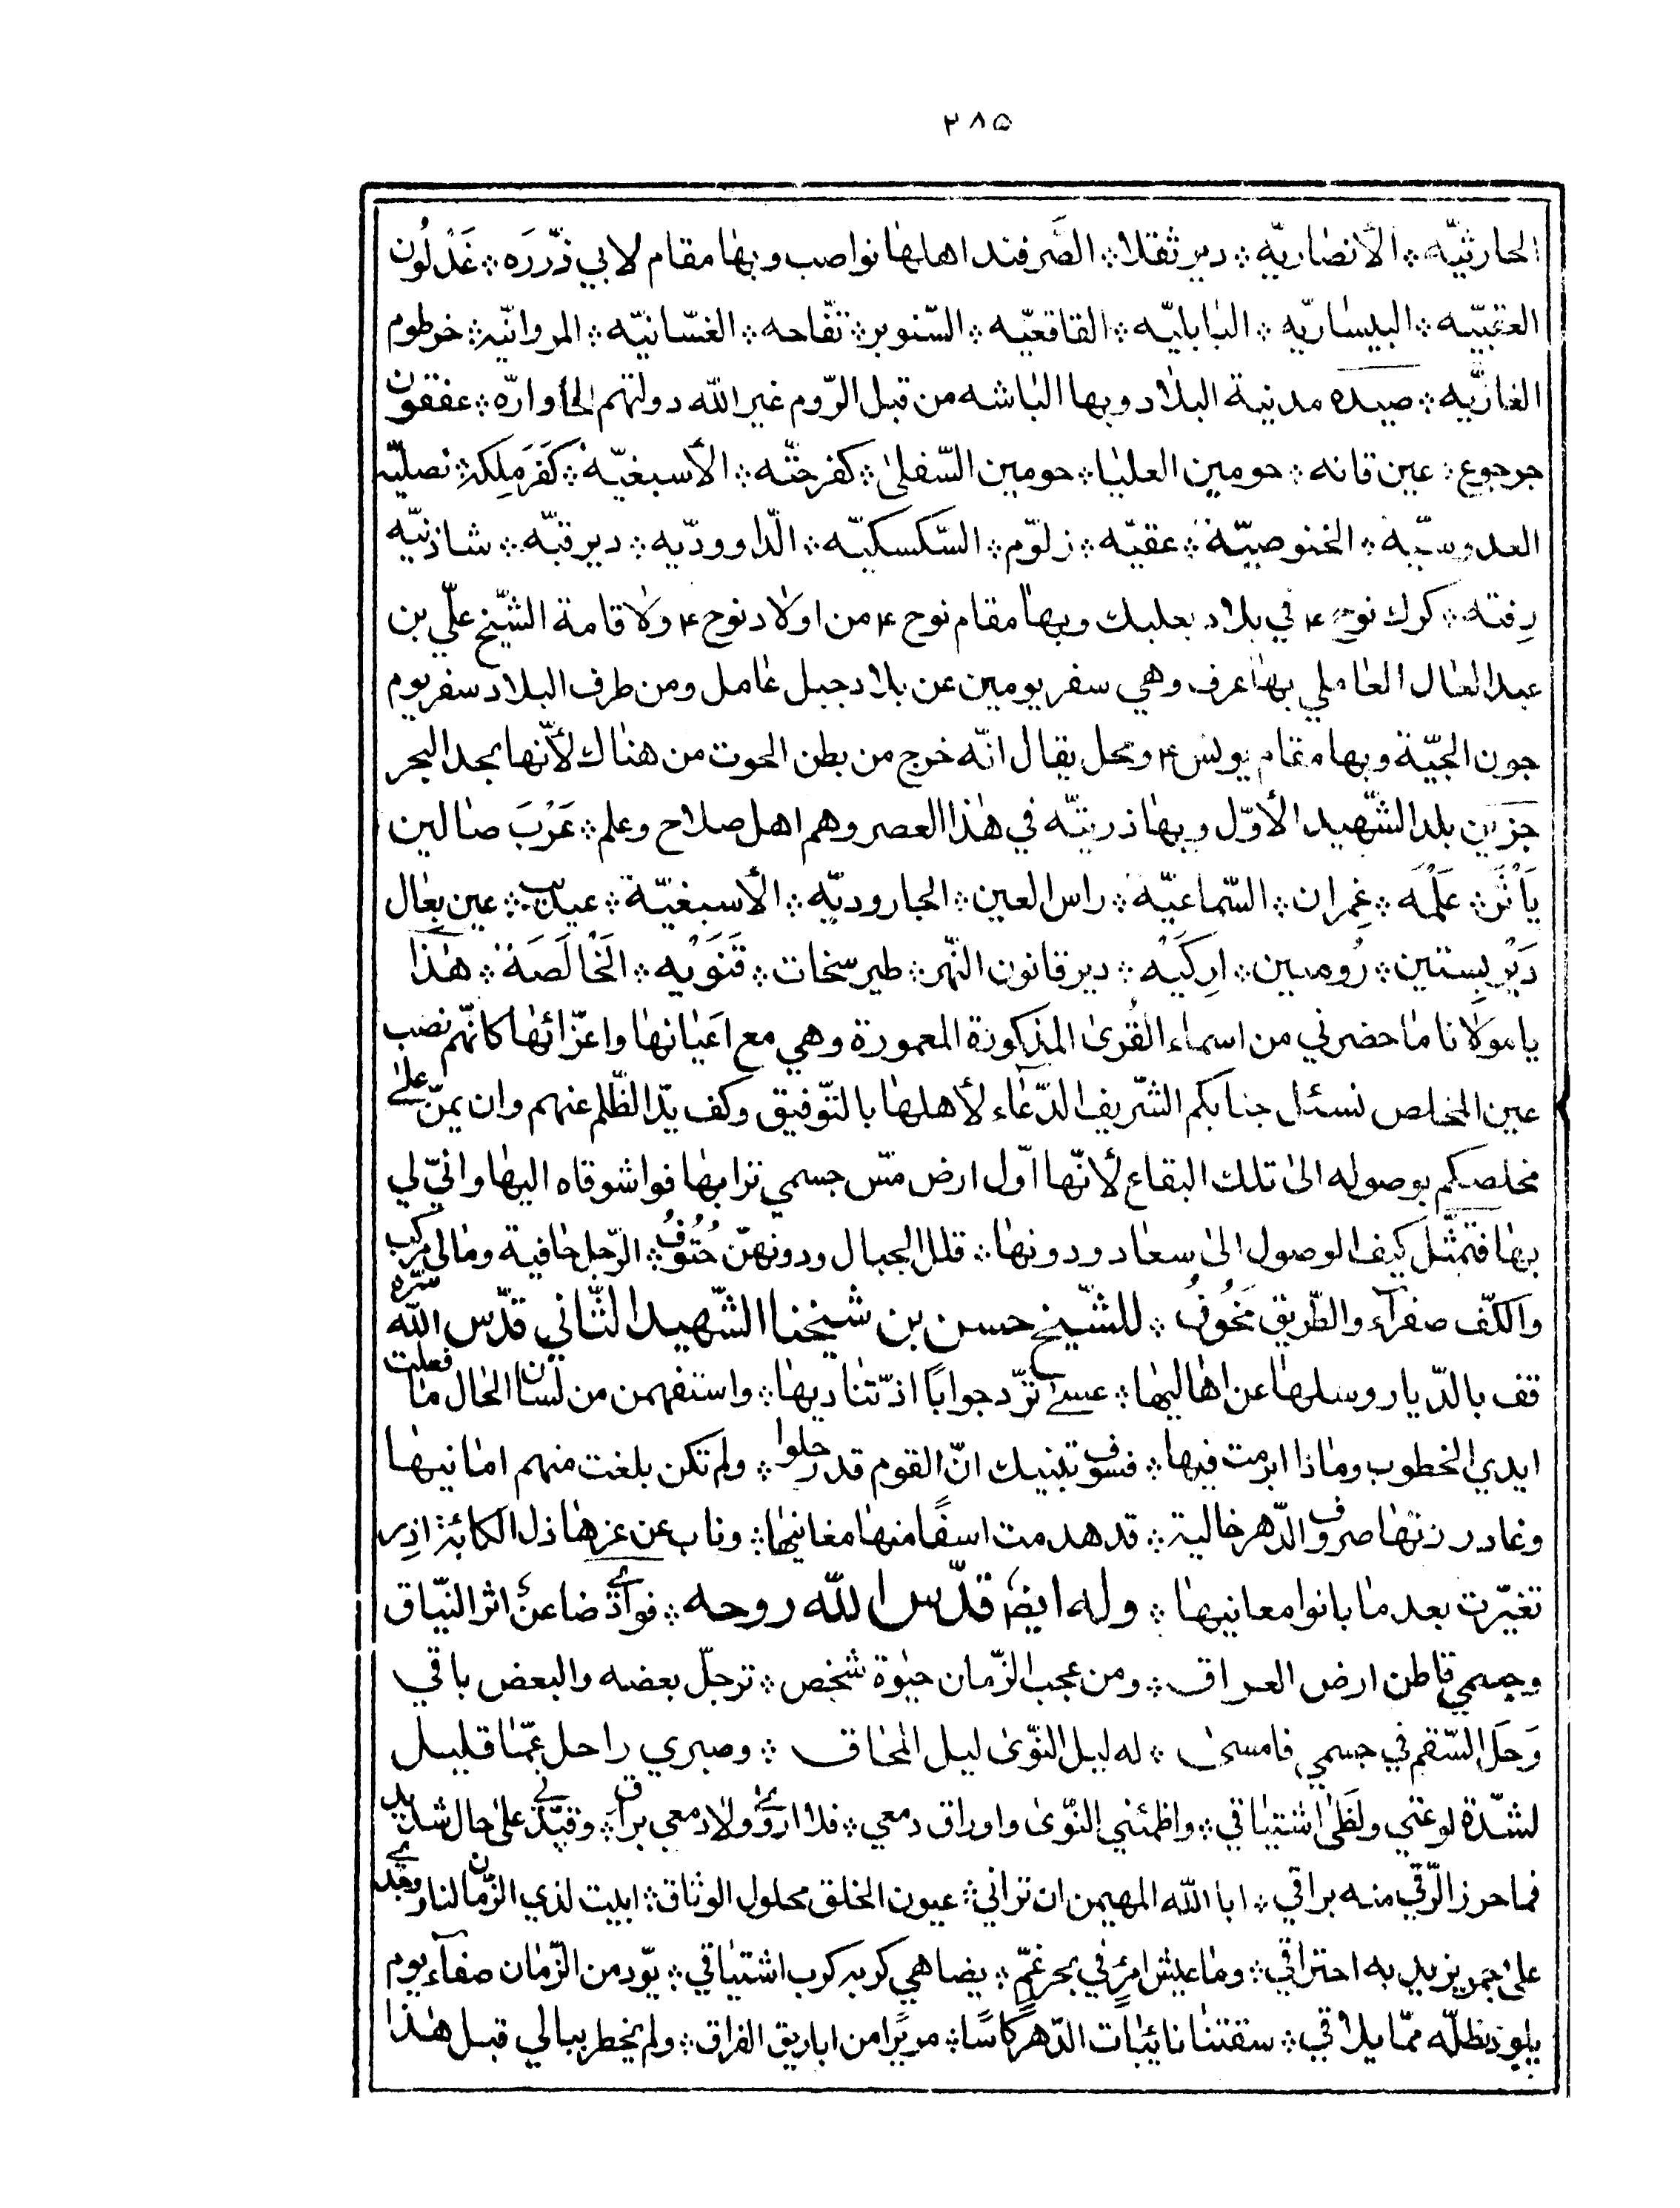 ٢٨٥
الحارثيّه ؞ الأنصاريّه ؞ دير ثقلا ؞ الصَّرفند اهلها نواصب وبها مقام لابي ذّر ره ؞ غَدْلُون
العقبيّه ؞ البيساريّه ؞ البابليّه ؞ القاقعيّه ؞ السّنوبر ؞ تفّاحه ؞ الغسّانيّه ؞ المروانيّه ؞ خرطوم
الغازيّه ؞ صيده مدنية البلاد وبها الباشه من قبل الرّوم غير الله دولتهم ؞ عفقون
جرجوع ؞ عين قانه ؞ حومين العليا ؞ حومين السّفلى ؞ كفر حتّه ؞ الأسبغيّه ؞ كَفَرمِلِكِه ؞ نصليّه
العدوسيّه ؞ الخنوصيّة ؞ عقيّه ؞ زلوّم ؞ السّكسكيّه ؞ الدّاووديّه ؞ دير قبّه ؞ شاذنيّه
رِفته ؞ كرك نوح ٤ في بلاد بعلبك وبها مقام نوح ٤ من اولاد نوح ٤ ولاقامة الشّيخ علّي بن
عبد العال العاملي بها عرف وهي سفر يومين عن بلاد جبل عامل ومن طرف البلاد سفر يوم
جون الجيّة وبها مقام يونس ٤ ومحل يقال انّه خرج من بطن الحوت من هناك لأنّها بجد البحر
جزين بلد الشّهيد الأوّل وبها ذريتّه في هذا العصر وهم اهل صلاح وعلم ؞ عَرْبَ صالين
يَأنَر ؞ عَلْمَه ؞ غِمران ؞ السّماعيّه ؞ راس العين ؞ الجاروديّه ؞ الأسبغيّة ؞ ؞ عين بعال
دَيْر بِستين ؞ رُومين ؞ اركَيْه ؞ دير قانون النّهر ؞ طير سخات ؞ قَنَوَيْه ؞ الخْالَصَة ؞ هذا
يا مولانا ما حضرني من اسماء القُرى المذكورة المعمورة وهي مع اعَيانها واعّزائها كانّهم نصب
عين المخلص نسئل جنابكم الشّريف الدّعاء لأهلها بالتّوفيق وكف يدّ الظّلم عنهم وان يمنّ على
مخلصكم بوصوله الى تلك البقاع لأنّها اوّل ارض مسّ جسمي ترابها فواشوقاه اليها وانيّ لي
بها فتمثّل كيف الوصول الى سعاد ودونها ؞ قلل الجبال ودونهنّ حُتُوفُ ؞ الرّجل حافية ومالى مركب
والكفّ صفرآء والطّريق مَخُوفُ ؞ للشّيخ حسن بن شيخنا الشّهيد الثّاني قدّس الله سّره
قف بالدّيار وسلها عن اهاليها ؞ عسى ترّد جوابًا اذ تّناديها ؞ واستفهمن من لسان الحال ما فعلت
ايدي الخطوب وماذا ابرمت فيها ؞ فسوف تنبيك انّ القوم قد رحلوا ؞ ولم تكن بلغت منهم امانيها
وغادرتها صروف الدّهر خالية ؞ قد هدمت اسفًا منها مغانيها ؞ وناب عن عزها ذل الكائبة اذ
تغيّرت بعد ما بانوا معانيها ؞ وله ايضً قدّس الله روحه ؞ فوآدى ضاعن اثر النّياق
وجسمي قاطن ارض العراق ؞ ومن عجب الزّمان حيوة شخص ؞ ترحّل بعضه والبعض باقي
وَحَل السّقم في جسمي فامسى ؞ له ليل النّوى ليل المحاق ؞ وصبري راحل عمّا قليل
لشدّة لوعتي ولَظَى اشتياقي ؞ واظمئني النّوى واوراق دمعي ؞ فلا اروى ولا دمعي براق ؞ وقيّدني على حال شديد
فما حرز الرّقي منه براقي ؞ ابا الله المهيمن ان تراني ؞ عيون الخلق محلول الوثاق ؞ ابيت لذي الزّمان لنار وجدى
على جمر يزيد به احتراقي ؞ وما عيش امرٍئ في بحر غمّ ؞ يضاهي كربه كرب اشتياقي ؞ يوّد من الزّمان صفآء يوم
يلوذ بظلّه ممّا يلاقي ؞ سقتنا نائبات الدّهر كاسًا ؞ مريًرا من اباريق الفراق ؞ ولم يخطر ببالي قبل هذا